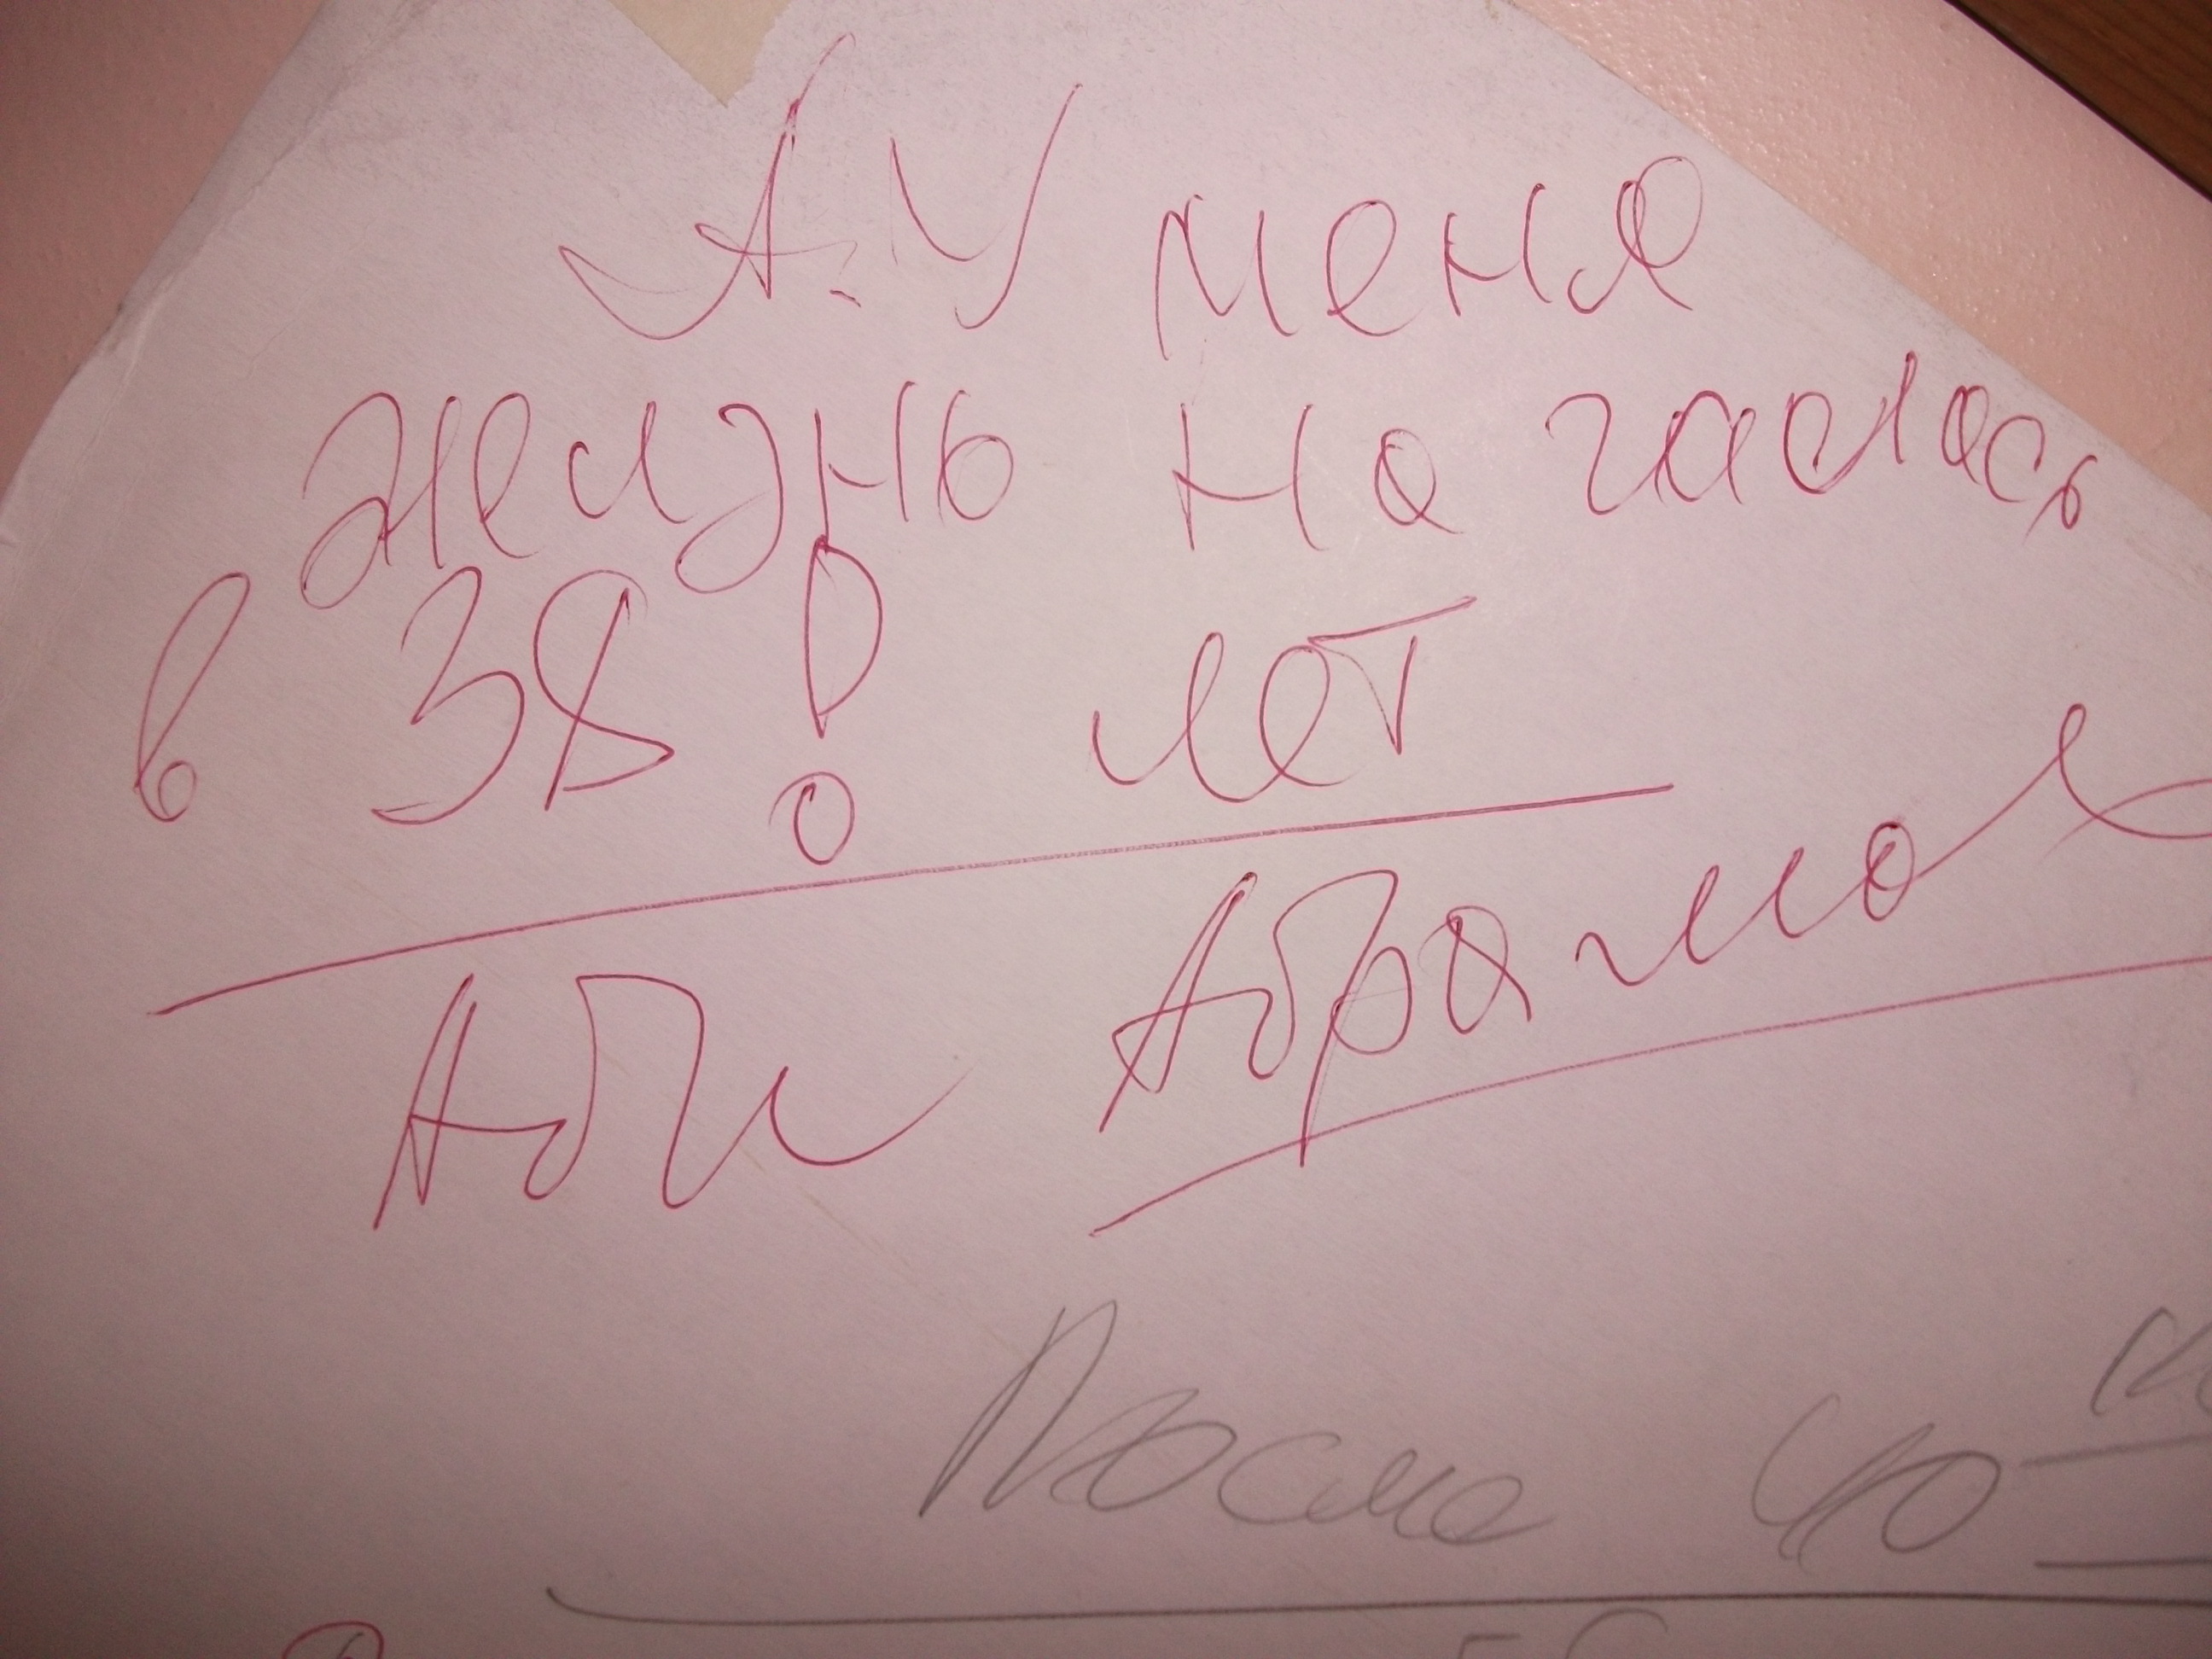 А У меня
жизнь началась
в 38 ! лет
Аби Абрамов
После 40